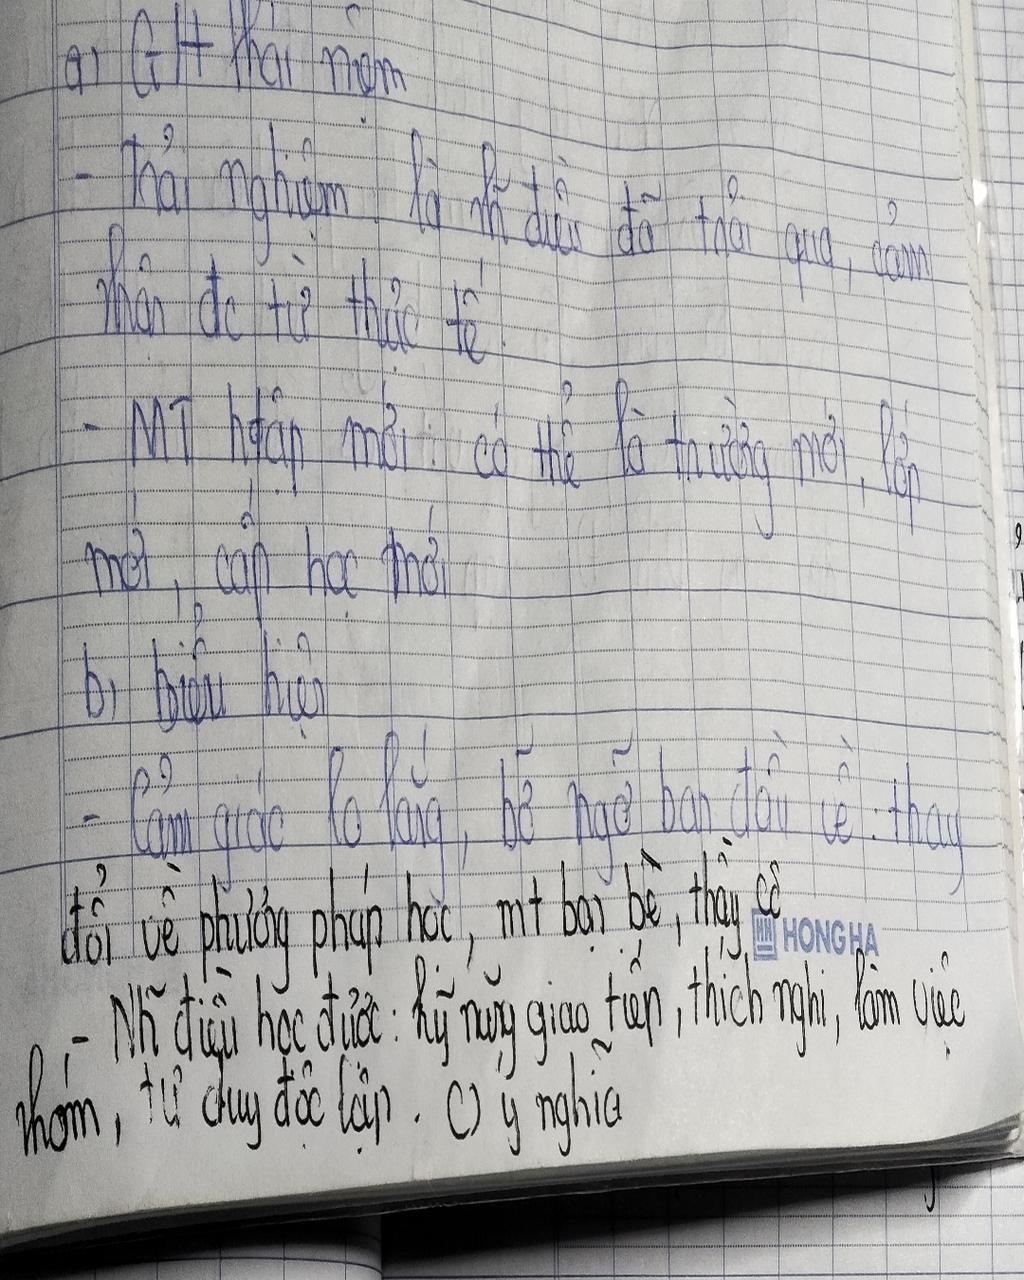 a) GH khái niệm
- Trải nghiệm: là nh~ điều đã trải qua, cảm
nhận đc từ thực tế.
- MT htập mới: có thể là trường mới, lớp
mới, cấp học mới
b) biểu hiện
- Cảm giác lo lắng, bỡ ngỡ ban đầu về: thay
đổi về phương pháp học, mt bạn bè, thầy cô
HONG HA
- Nh~ điều học được: kỹ năng giao tiếp, thích nghi, làm việc
nhóm, tư duy độc lập. c) ý nghĩa